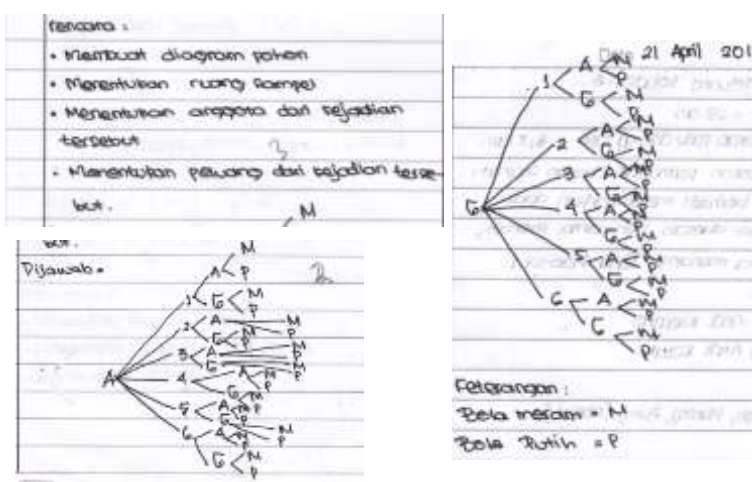 rencana :
• Membuat diagram pohon
• Menentukan ruang sampel
• Menentukan anggota dari kejadian
tersebut
3
• Menentukan peluang dari kejadian terse-
but.
M
but.
Dijawab =
2
A
1 A M
P
G M
P
2 A M
P
G M
P
3 A M
P
G M
P
4 A M
P
G M
P
5 A M
P
G M
P
6 A M
P
G M
P
Date 21 April 201
G
1 A M
P
G M
P
2 A M
P
G M
P
3 A M
P
G M
P
4 A M
P
G M
P
5 A M
P
G M
P
6 A M
P
G M
P
Keterangan :
Bola merah = M
Bola Putih = P